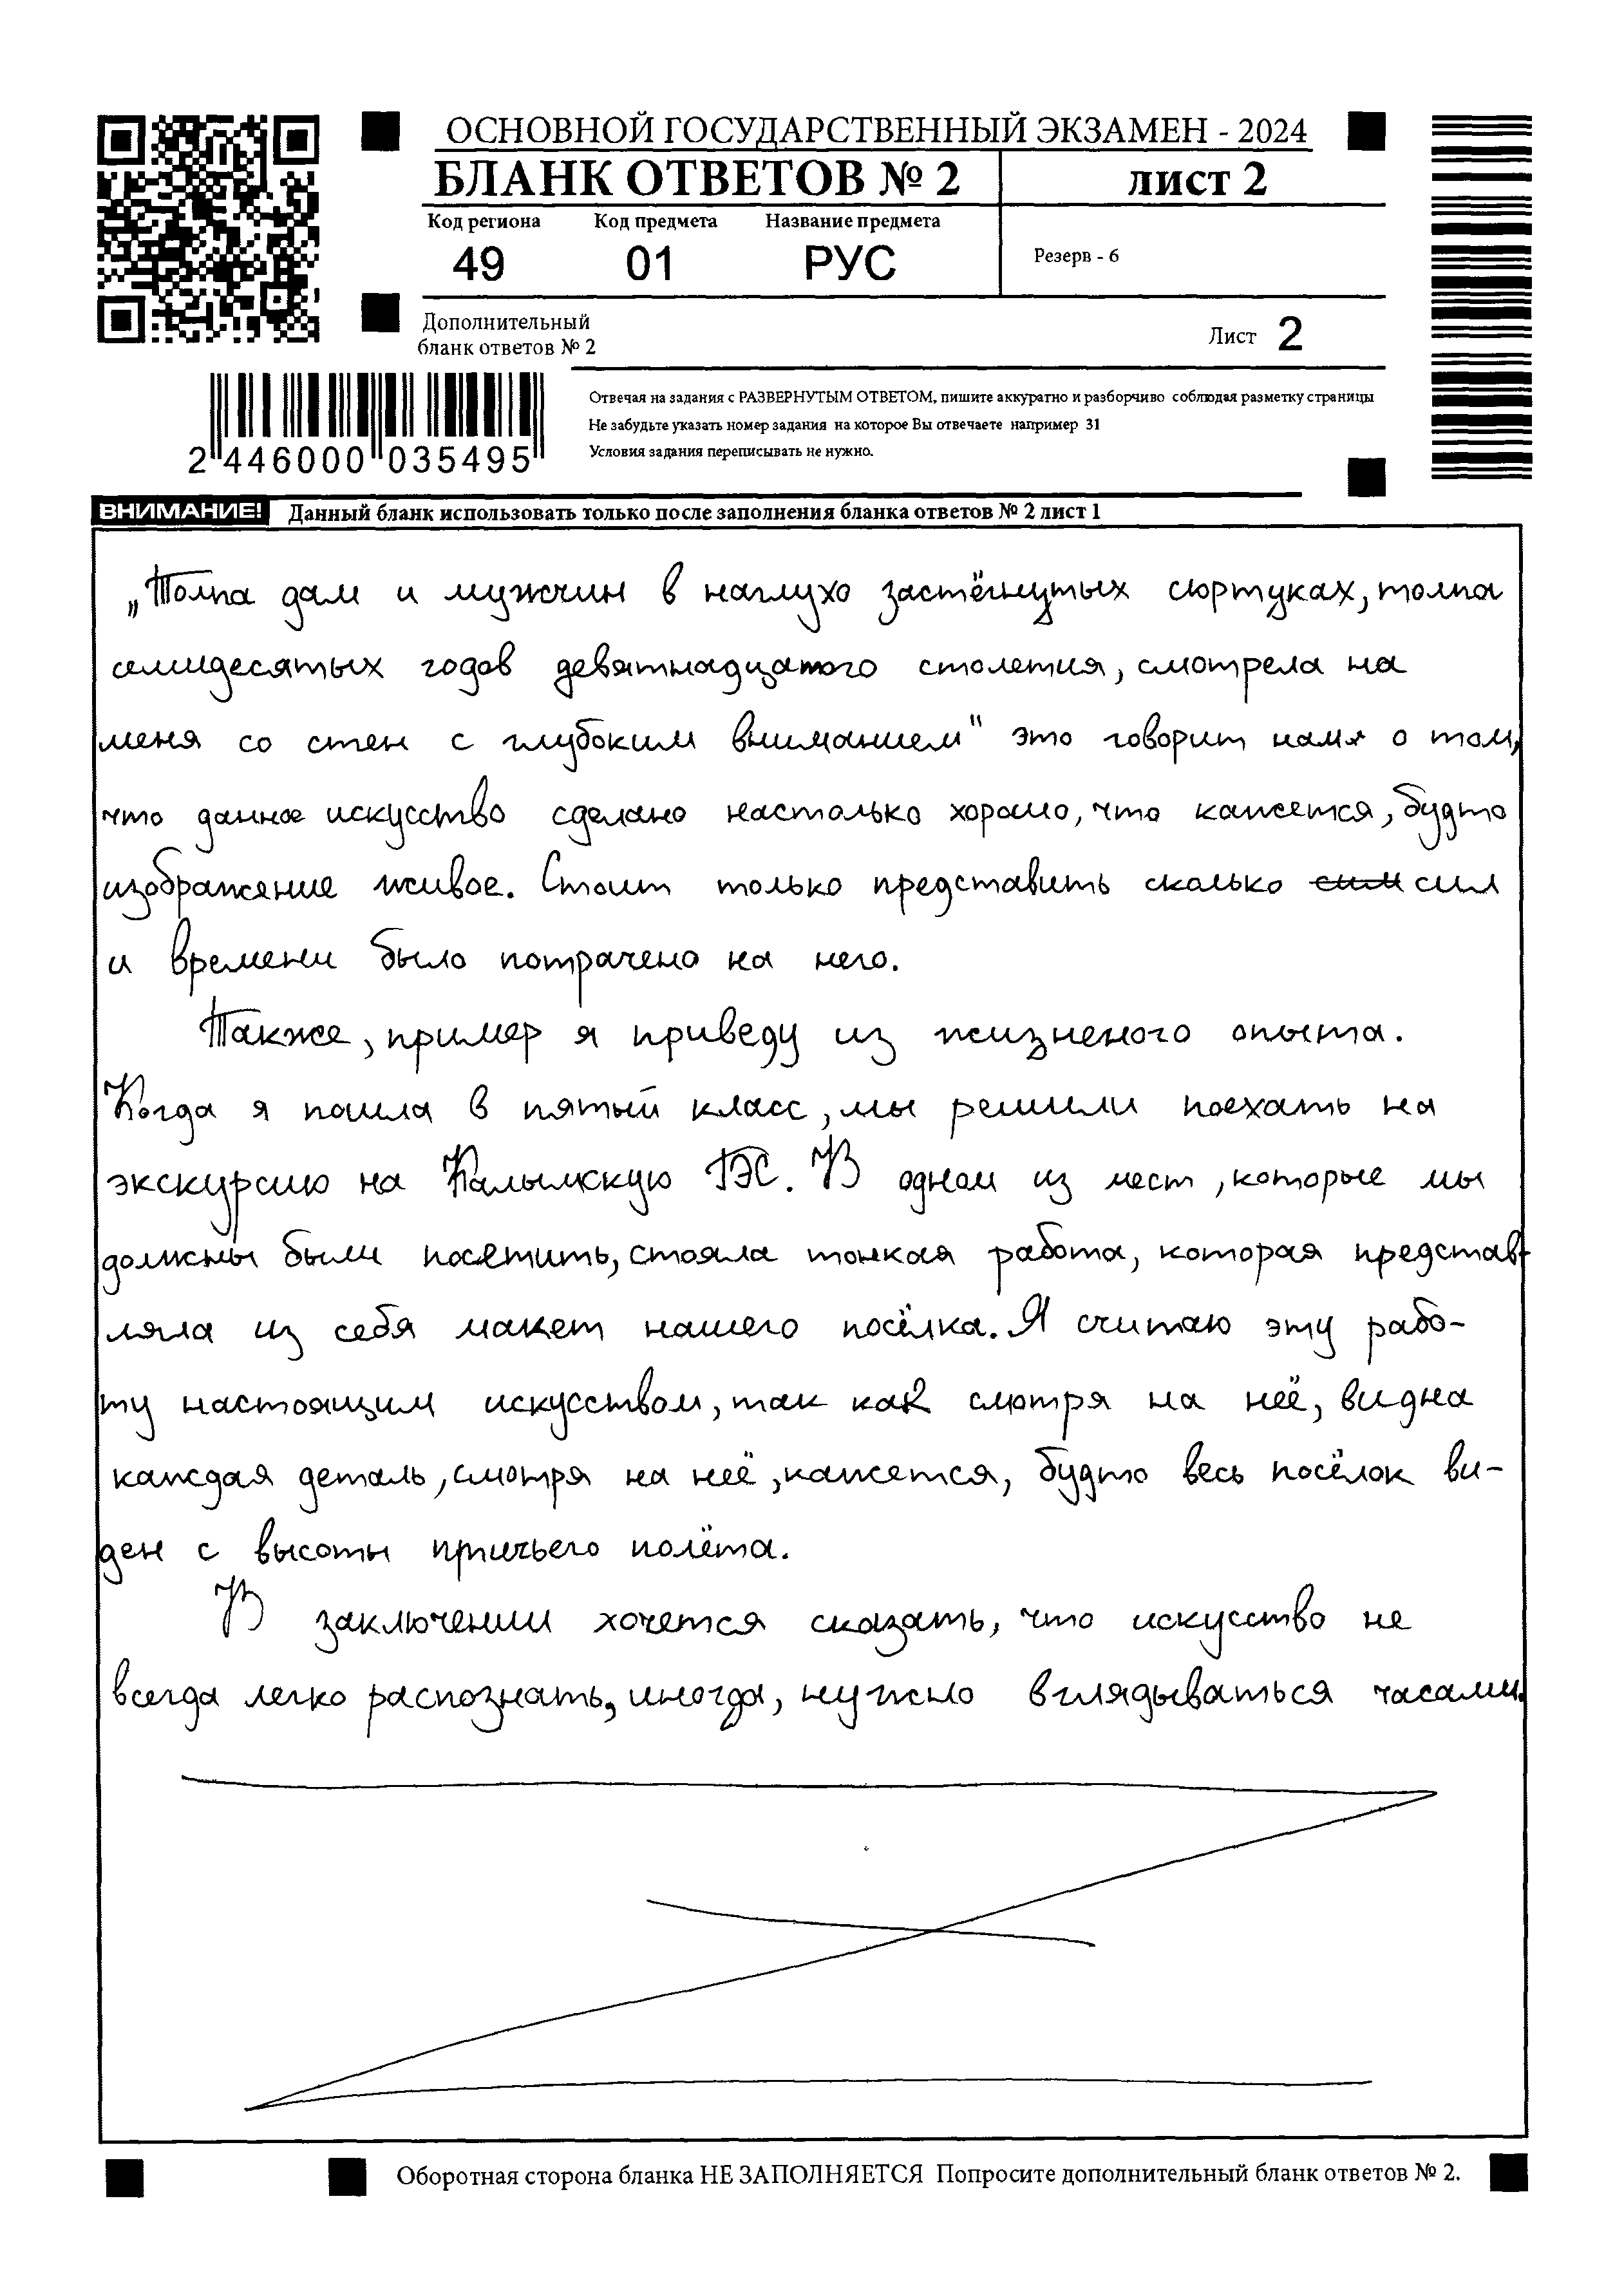 ОСНОВНОЙ ГОСУДАРСТВЕННЫЙ ЭКЗАМЕН - 2024
БЛАНК ОТВЕТОВ № 2
ЛИСТ 2
Код региона Код предмета Название предмета
49 01 РУС
Резерв - 6
Дополнительный
бланк ответов № 2
Лист 2
Отвечая на задания с РАЗВЕРНУТЫМ ОТВЕТОМ, пишите аккуратно и разборчиво соблюдая разметку страницы
Не забудьте указать номер задания на которое Вы отвечаете например 31
Условия задания переписывать не нужно.
2 446000 035495
ВНИМАНИЕ! Данный бланк использовать только после заполнения бланка ответов № 2 лист 1
„Толпа дам и мужчин в наглухо застёгнутых сюртуках, толпа
семидесятых годов девятнадцатого столетия, смотрела на
меня со стен с глубоким вниманием" это говорит нам о том,
что данное искусство сделано настолько хорошо, что кажется, будто
изображение живое. Стоит только представить сколько сил
и времени было потрачено на него.
Также, пример я приведу из жизненого опыта.
Когда я пошла в пятый класс, мы решили поехать на
экскурсию на Калымскую ГЭС. В одном из мест, которые мы
должны были посетить, стояла тонкая работа, которая представ-
ляла из себя макет нашего посёлка. Я считаю эту рабо-
ту настоящим искусством, так как смотря на неё, видна
каждая деталь, смотря на неё, кажется, будто весь посёлок ви-
ден с высоты птичьего полёта.
В заключении хочется сказать, что искусство не
всегда легко распознать, иногда, нужно вглядываться часами.
Оборотная сторона бланка НЕ ЗАПОЛНЯЕТСЯ Попросите дополнительный бланк ответов № 2.